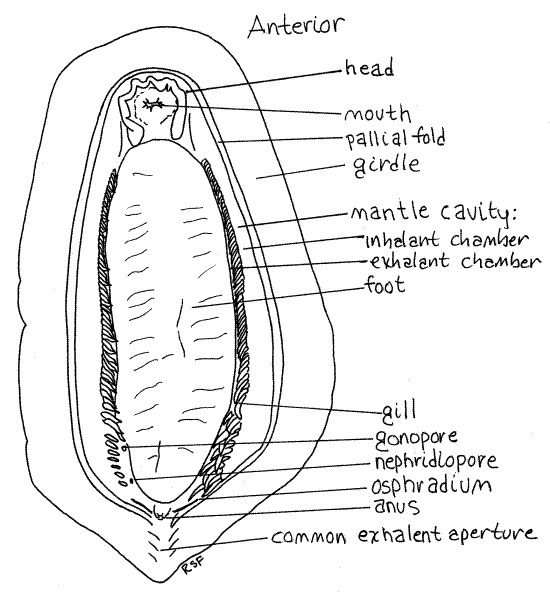 Anterior
head
mouth
pallial fold
girdle
mantle cavity:
inhalant chamber
exhalant chamber
foot
gill
gonopore
nephridiopore
osphradium
anus
common exhalent aperture
RSF